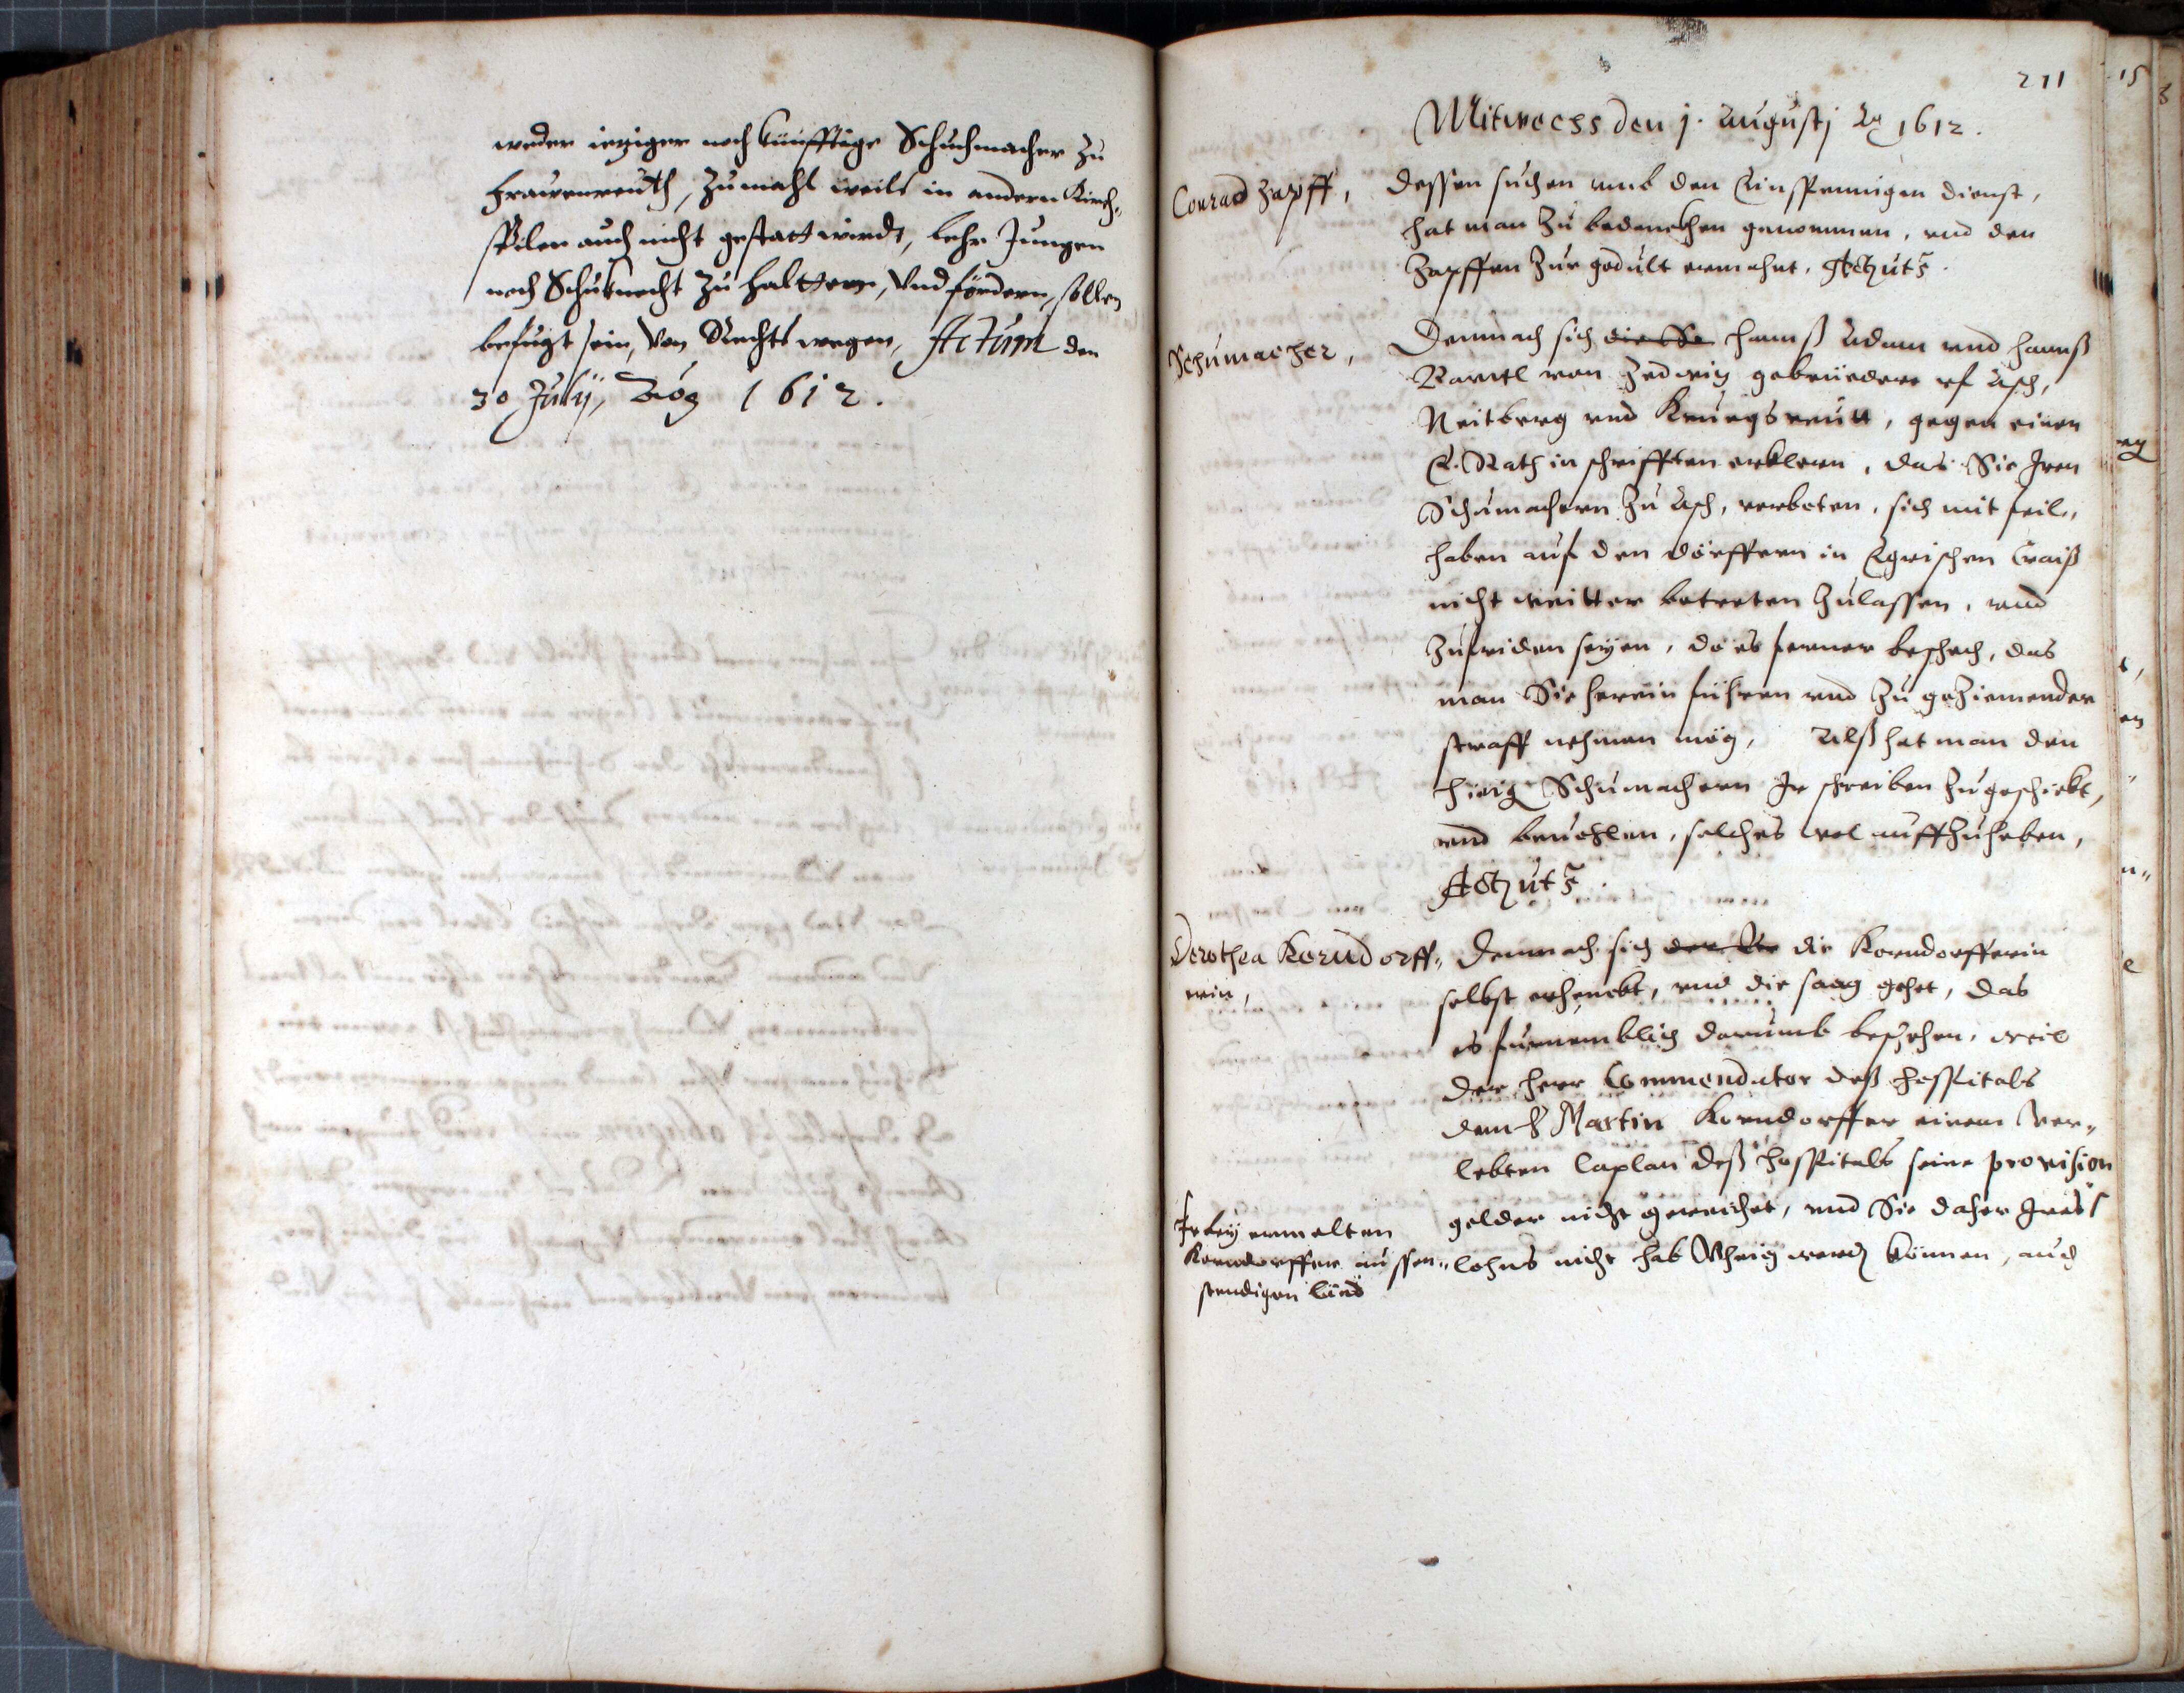 weder ieziger noch künfftige Schuchmacher zu
Frauenreuth, Zumahl weils in andern Kirch„
spilen auch nicht gestatt wirdt, lehr Jungen
noch Schuknecht zu haltten, Vnd fördern, sollen
befugt sein, Von Rechts wegen, Actum den
30 July, Aõ 1612.
211
Mitwochs den j. Augustj Aõ 1612.
Conrad Zapff,
dessen suchen vmb den Einspennigen dienst,
hat man zu bedenckhen genommen, vnd den
Zapffen zur gedult vermahnt.
Schumacher,
Demnach sich hannß Adam vnd hannß
von Zedwiz gebrüedere vf Asch,
Neitberg vnd Krugsreut, gegen einen
E. Rath in schrifften erklern, das Sie Iren
Schumachern zu Asch, verboten, sich mit feil„
haben auf den dörffern in Egrischen Craiß
nicht weitter betretten zulassen, vnd
zufriden seyen, do es ferner beschech, das
man Sie herein führen vnd zu geziemender
straff nehmen mög, Alß hat man den
hieig Schumachern Ir schreiben zugeschickt,
vnd beuohlen, solches wol auffzuheben,
Dorothea Korndorff„
erin,
Demnach sich die Korndorfferin
selbst erhenckt, vnd die sag gehet, das
es furnemblich darumb beschehen, weil
der herr Commendator deß hospitals
dem H Martin Korndorffer einem ver„
lebten Caplan deß hospitals seine provision
gelder nicht gereichet, vnd Sie daher Ires
bey ermelten
Korndorffer aussen„
stendigen
lohns nicht hab können, auch